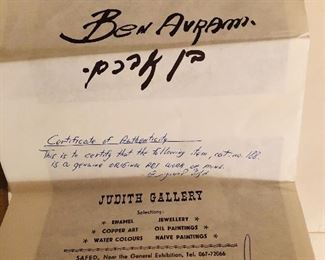 BEN AVRAM.
בן אברם.
Certificate of Authenticity
This is to certify that the following item, cat. no. 188
is a genuine original art work of mine.
JUDITH GALLERY
Selections:
ENAMEL ★ JEWELLERY
COPPER ART ★ OIL PAINTINGS
★ WATER COLOURS ★ NAIVE PAINTINGS ★
SAFED, Near the General Exhibition, Tel. 067-72066